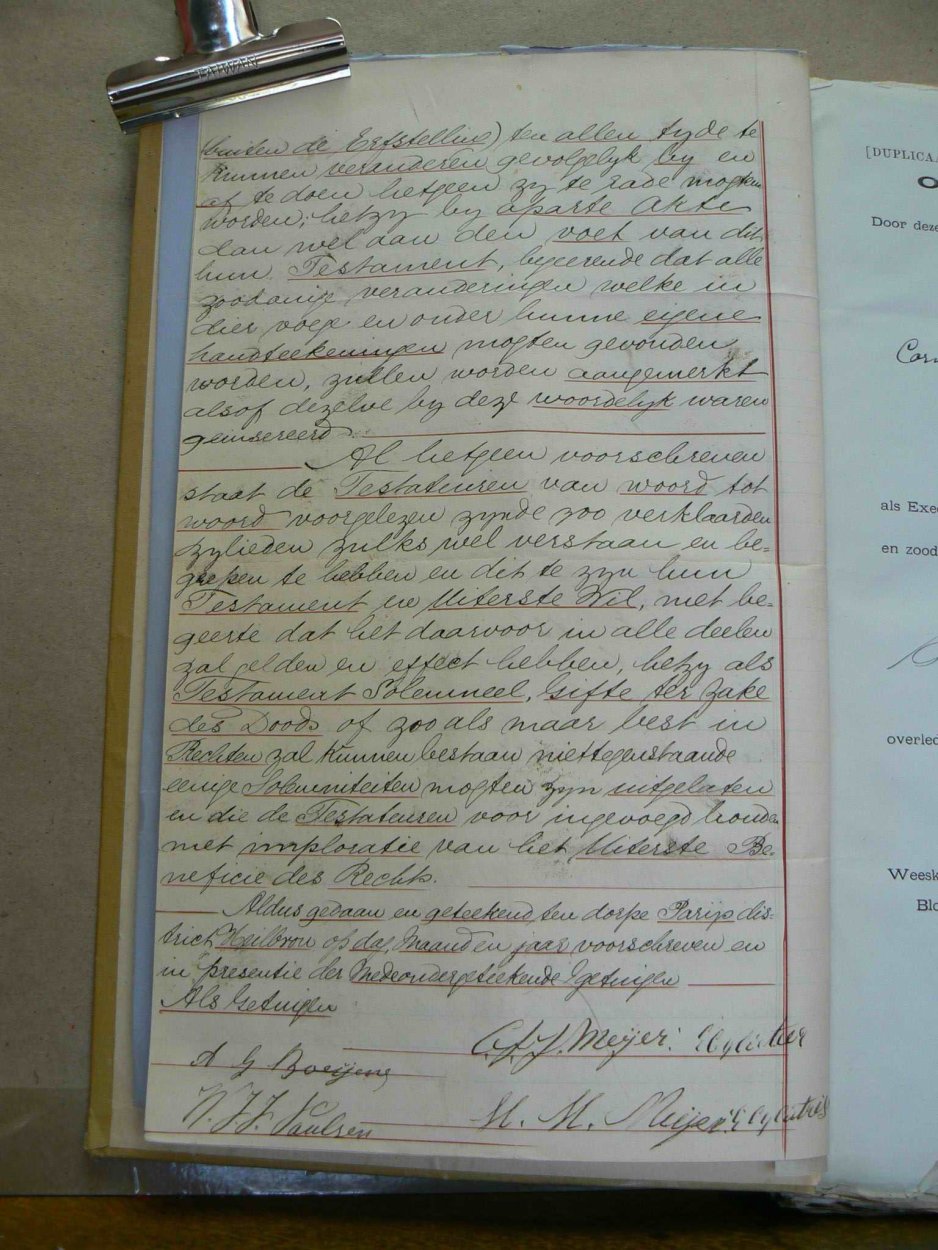 (buiten de Erfstelling) ten allen tyde te
kunnen veranderen gevolgelyk by en
af te doen hetgeen zy te rade mogten
worden; hetzy by aparte Akte
dan wel aan den voet van dit
hun Testament, begeerende dat alle
zoodanige veranderingen welke in
dier voege en onder hunne eigene
handteekeningen mogten gevonden
worden, zullen worden aangemerkt
alsof dezelve by deze woordelyk waren
geinsereerd
Al hetgeen voorschreven
staat de Testateuren van woord tot
woord voorgelezen zynde zoo verklaarden
zylieden zulks wel verstaan en be=
grepen te hebben en dit te zyn hun
Testament en Uiterste Wil, met be=
geerte dat het daarvoor in alle deelen
zal gelden en effect hebben, hetzy als
Testament Solemneel, Gifte ter zake
des Doods of zoo als maar best in
Rechten zal kunnen bestaan niettegenstaande
eenige Solemniteiten mogten zyn uitgelaten
en die de Testateuren voor ingevoegd houden
met imploratie van het Uiterste Be=
neficie des Rechts.
Aldus gedaan en geteekend ten dorpe Parijs dis=
trict Heilbron op dag, Maand en jaar voorschreven en
in presentie der Medeondergeteekende getuigen
Als Getuigen
C.F.J. Meijer.
A G Booijens
N. J. J. Paulsen
M. M. Meijer
[DUPLICA
O
Door deze
Cor
als Exec
en zood
overled
Weesk
Blo